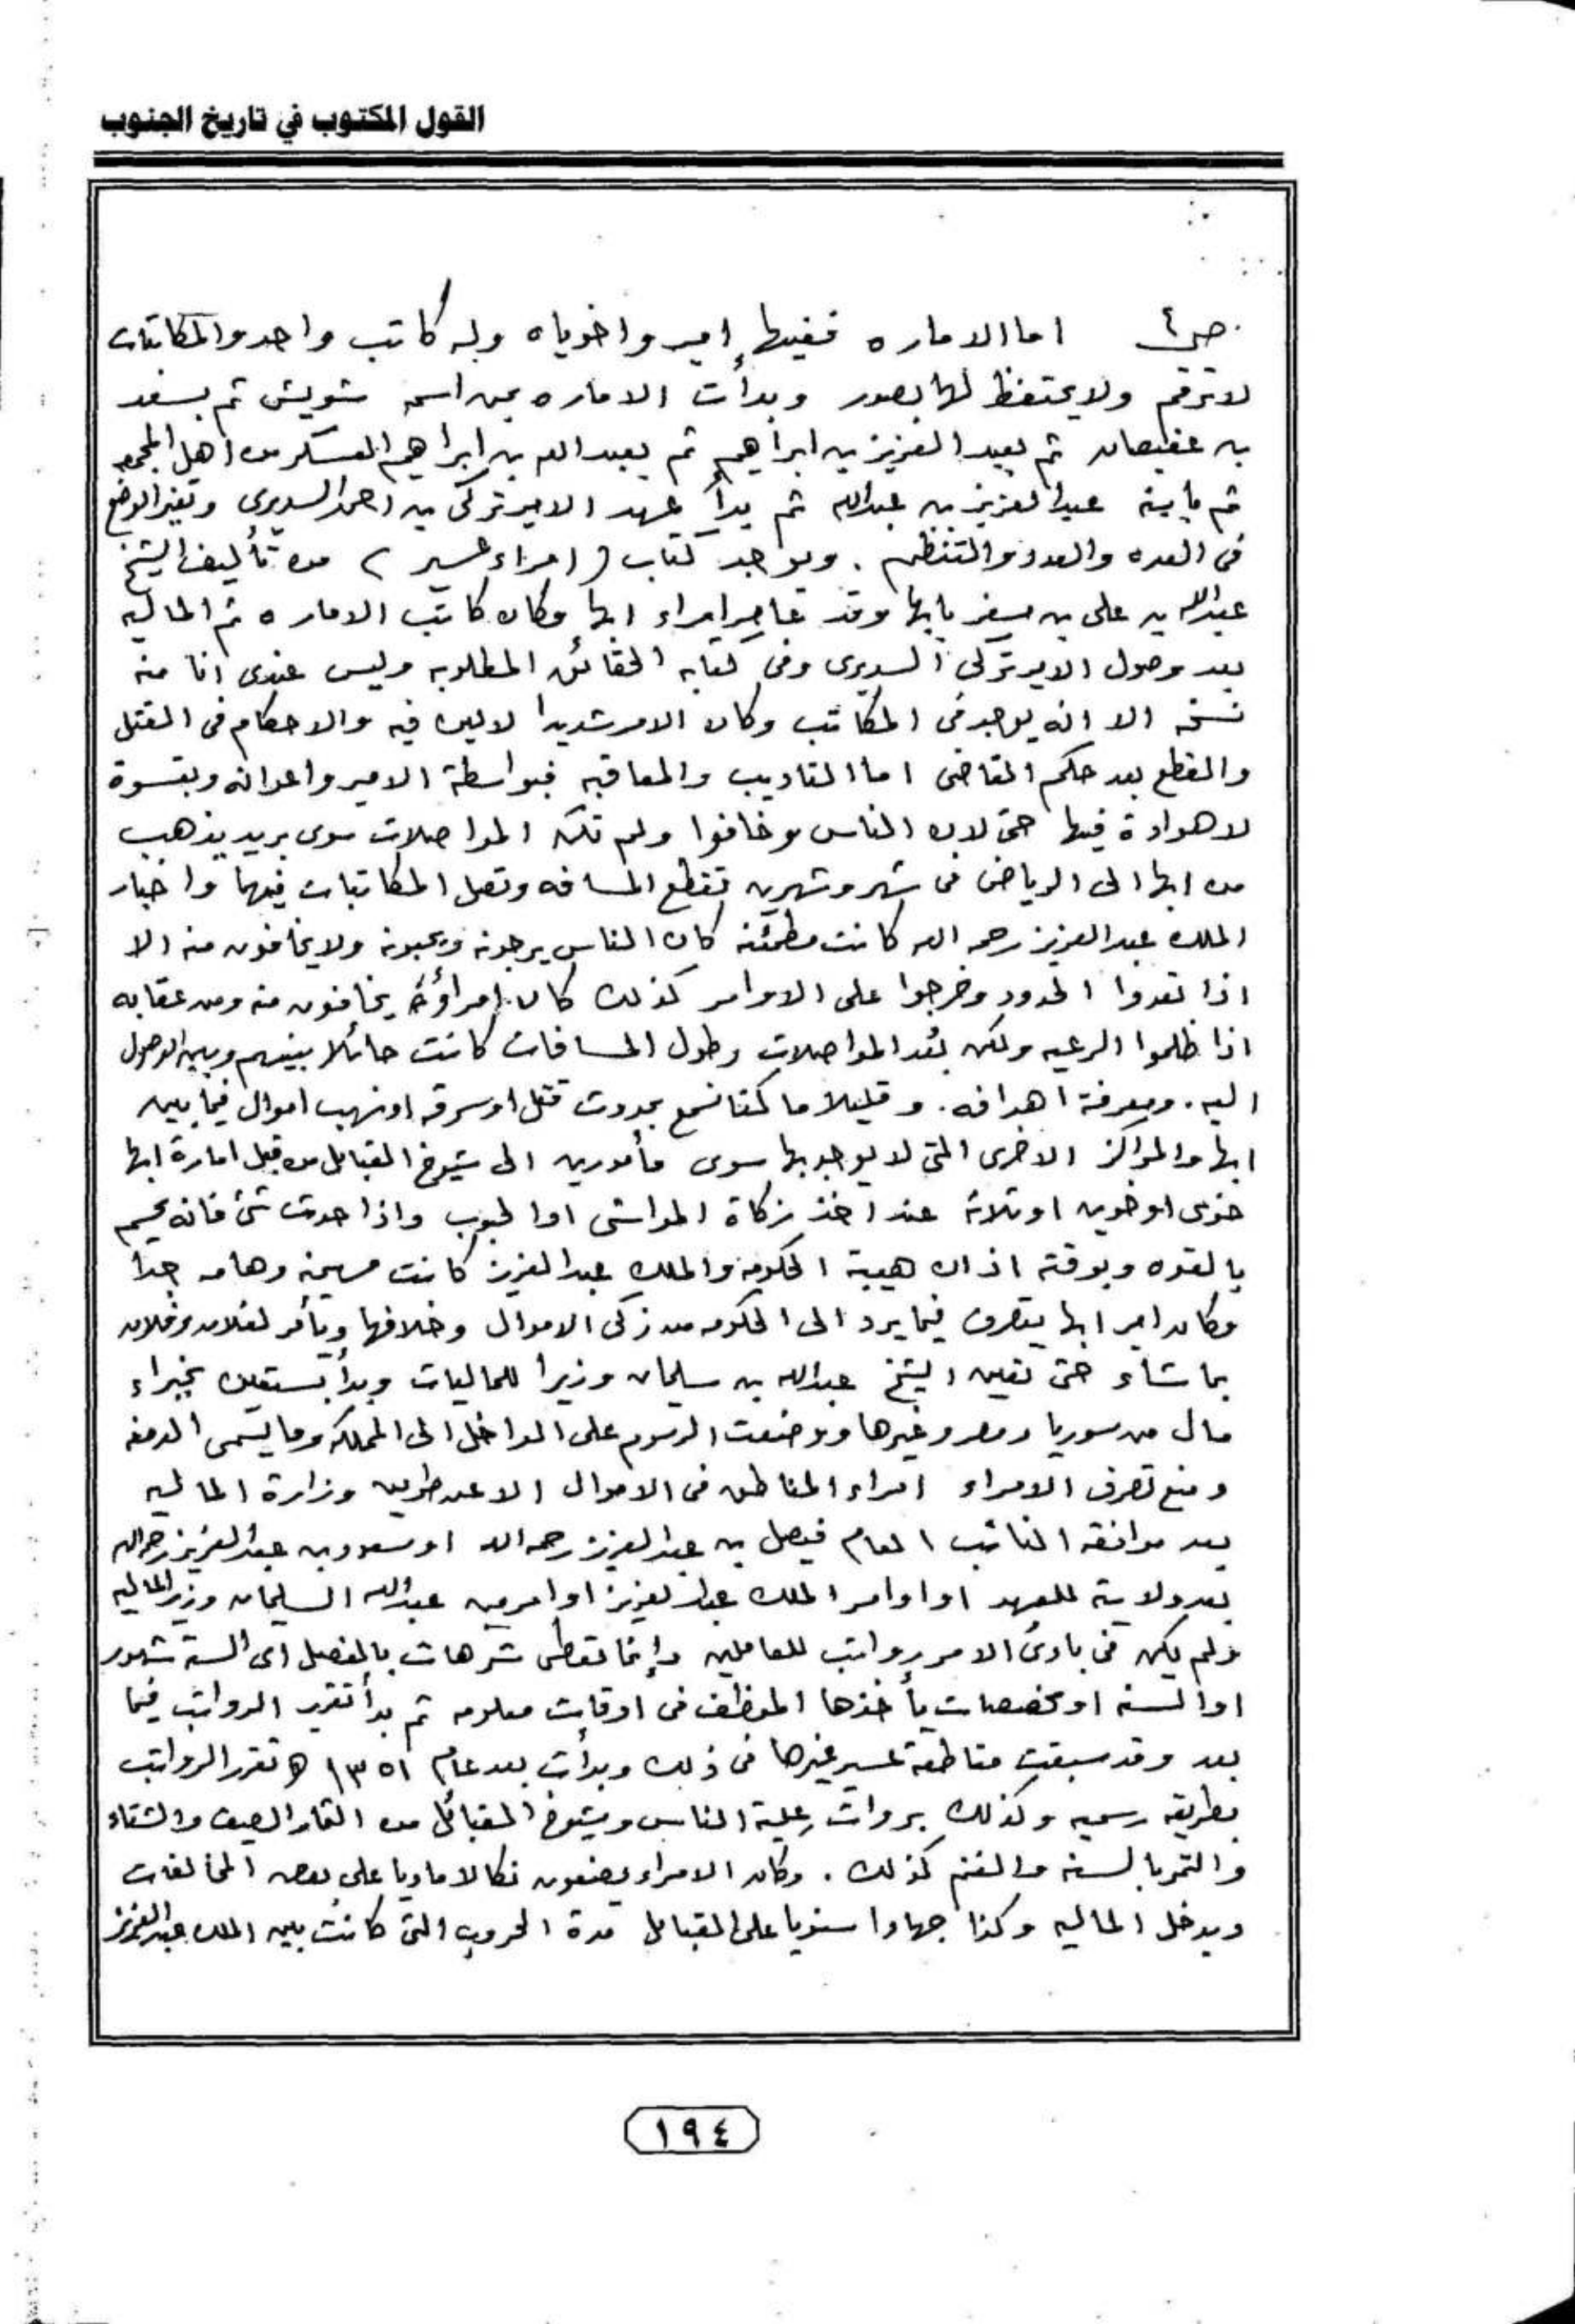 القول المكتوب في تاريخ الجنوب
ص٤ اما الاماره ففيها إمير واخوياه وله كاتب واحد والمكاتبات
لا ترقم ولا يحتفظ لها بصور وبدأت الاماره بمن اسمه شويش ثم بسعد
بن عفيصان ثم بعبد العزيز بن ابراهيم ثم بعبد الله بن إبراهيم العسكر من اهل المجمعه
ثم بابنه عبدالعزيز بن عبدالله ثم بدأ عهد الامير تركي بن احمد السديري وتغير الوضع
في العده والعدد والتنظيم . ويوجد كتاب ( امراء عسير ) من تأليف الشيخ
عبدالله بن علي بن مسفر بابها وقد عاصر امراء ابها وكان كاتب الاماره ثم الماليه
بعد وصول الامير تركي السديري وفي كتابه الحقائق المطلوبه وليس عندي انا منه
نسخه الا انه يوجد في المكاتب وكان الامر شديدا لا لين فيه والاحكام في القتل
والقطع بعد حكم القاضي اما التاديب والمعاقبه فبواسطة الامير واعوانه وبقسوة
لا هوادة فيها حتى لان الناس وخافوا ولم تكن المواصلات سوى بريد يذهب
من ابها الى الرياض في شهر وشهرين تقطع المسافه وتصل المكاتبات فيهما واخبار
الملك عبد العزيز رحمه الله كانت مطمئنه كان الناس يرجونه ويحبونه ولا يخافون منه الا
اذا تعدوا الحدود وخرجوا على الاوامر كذلك كان إمراؤه يخافون منه ومن عقابه
اذا ظلموا الرعيه ولكن بُعد المواصلات وطول المسافات كانت حائلا بينهم وبين الوصول
اليه . ومعرفة اهدافه . وقليلا ما كنا نسمع بحدوث قتل او سرقه او نهب اموال فيما بين
ابها والمراكز الاخرى التي لا يوجد بها سوى مأمورين الى شيوخ القبايل من قبل امارة ابها
خوي او خوين او ثلاثه عند اخذ زكاة المواشي او الحبوب واذا حدث شئ فانه يحسم
بالقوه وبوقته اذ ان هيبة الحكومه والملك عبد العزيز كانت مهيمنه وهامه جدا
وكان امير ابها يتصرف فيما يرد الى الحكومه من زكى الاموال وخلافها ويأمر لفلان وفلان
بما شاء حتى تعين الشيخ عبدالله بن سليمان وزيرا للماليات وبدأ يستعين بخبراء
مال من سوريا ومصر وغيرها ووضعت الرسوم على المداخل الى المملكه وما يسمى الدمغه
ومنع تصرف الامراء امراء المناطق في الاموال الا عن طريق وزارة الماليه
بعد موافقه النائب العام فيصل بن عبد العزيز رحمه الله او سعود بن عبدالعزيز رحمه الله
بعد ولايته للعهد او اوامر الملك عبدالعزيز او امر من عبدالله السليمان وزير الماليه
ولم يكن في بادئ الامر رواتب للعاملين وإنما تعطى شرهات بالفصل اى الستة شهور
او السنه او مخصصات يأخذها الموظف في اوقات معلومه ثم بدأ تقرير الرواتب فيما
بعد وقد سبقت مقاطعة عسير غيرها في ذلك وبدأت بعد عام ١٣٥١ ه تقرر الرواتب
بطريقه رسميه وكذلك بروات علية الناس وشيوخ القبائل من الثمار الصيف والشتاء
والتمر بالسنه والغنم كذلك . وكان الامراء يضعون نكالا ماديا على بعض المخالفات
ويدخل الماليه وكذا جهادا سنويا على القبايل مدة الحروب التي كانت بين الملك عبدالعزيز
١٩٤